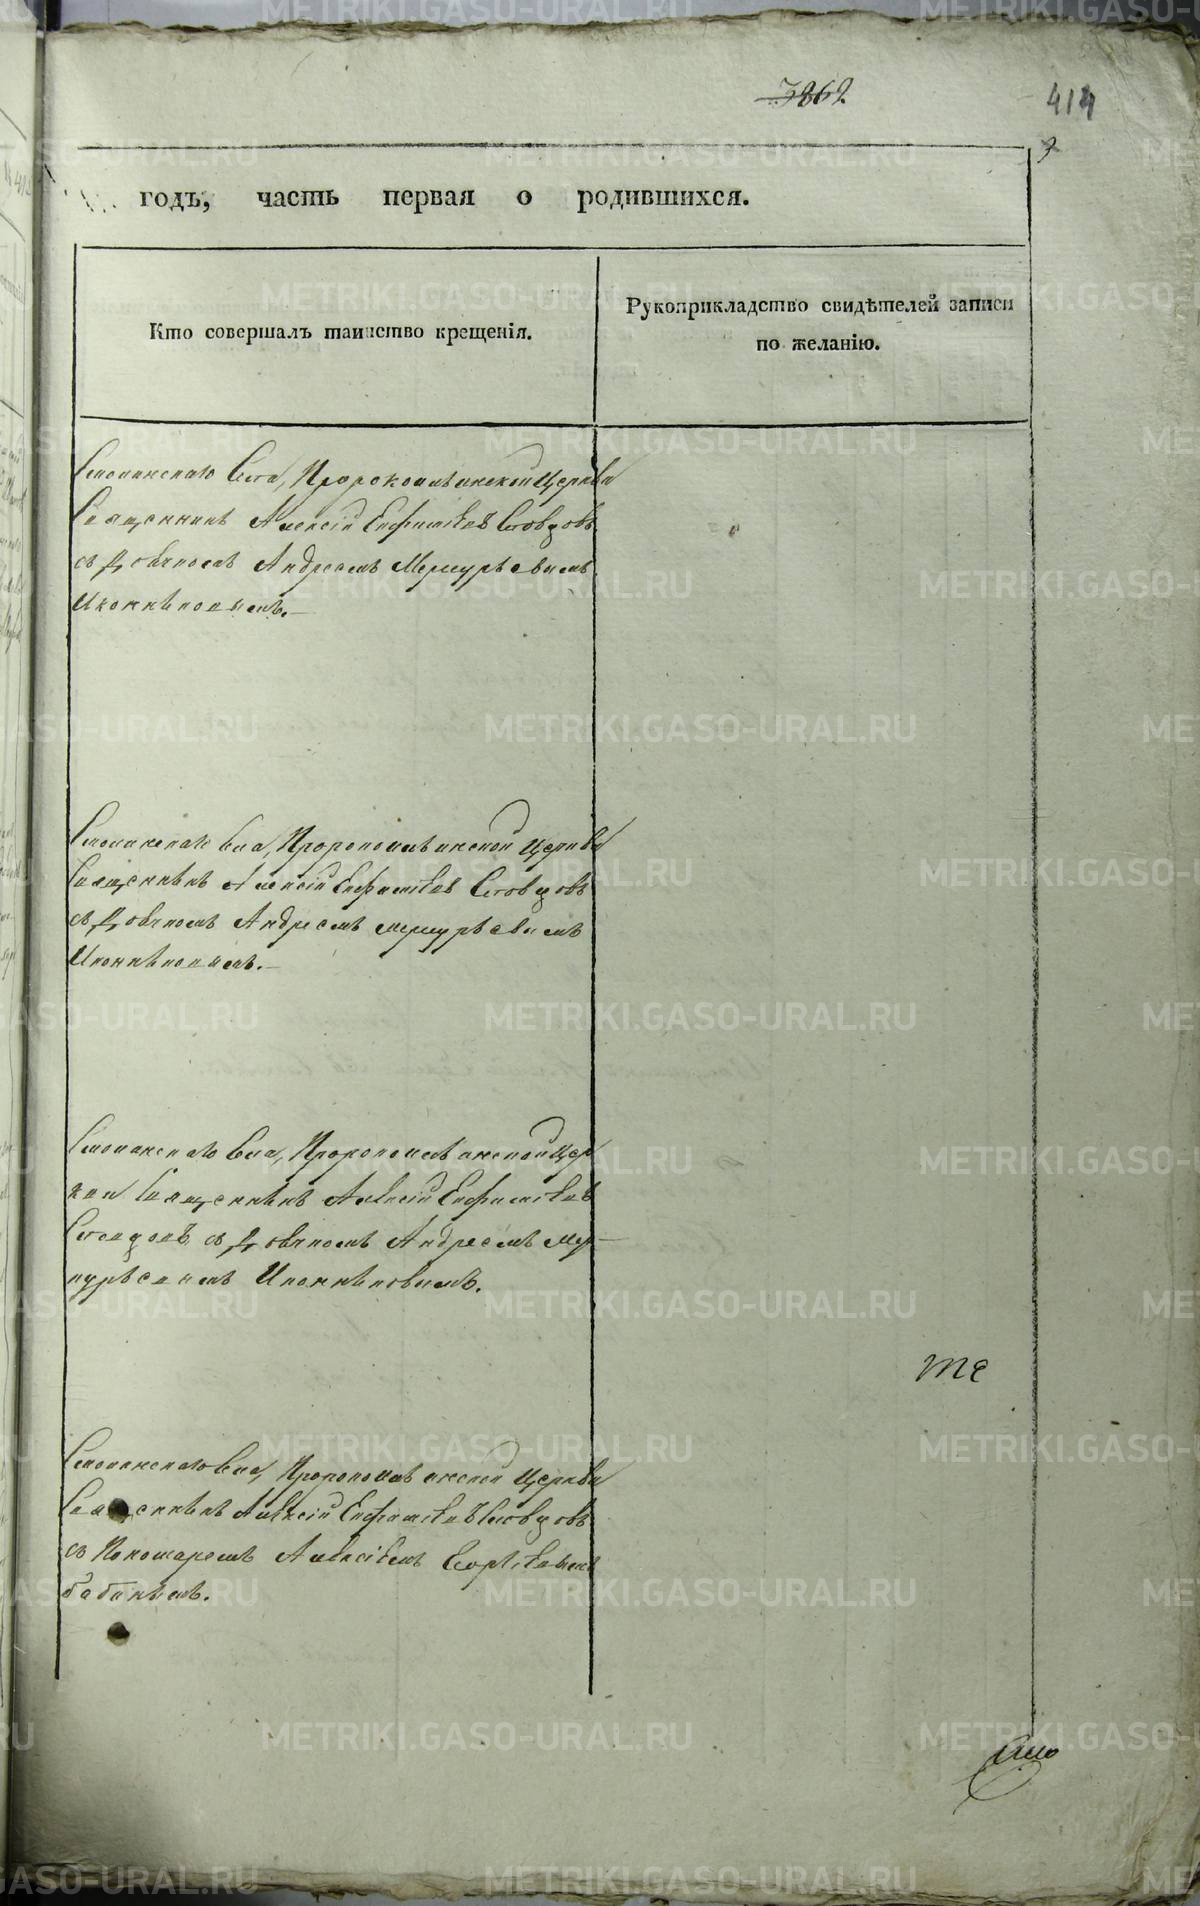 3862
414
годъ, часть первая о родившихся.
Кто совершалъ таинство крещенія.
Рукоприкладство свидѣтелей записи
по желанію.
Смолинскаго Села, Пророкоильинской Церкви
Священникъ Алексій Евфиміевъ Словцовъ
съ Дьячкомъ Андреемъ Меркурьевымъ
Иконниковымъ.
Смолинскаго Села, Пророкоильинской Церкви
Священникъ Алексій Евфиміевъ Словцовъ
съ Дьячкомъ Андреемъ Меркурьевымъ
Иконниковымъ.
Смолинскаго Села, Пророкоильинской Цер
кви Священникъ Алексій Евфиміевъ
Словцовъ съ Дьячкомъ Андреемъ Мер-
курьевымъ Иконниковымъ.
Смолинскаго Села, Пророкоильинской Церкви
Священникъ Алексій Евфиміевъ Словцовъ
съ Пономаремъ Алексіемъ
Бабинымъ.
METRIKI.GASO-URAL.RU